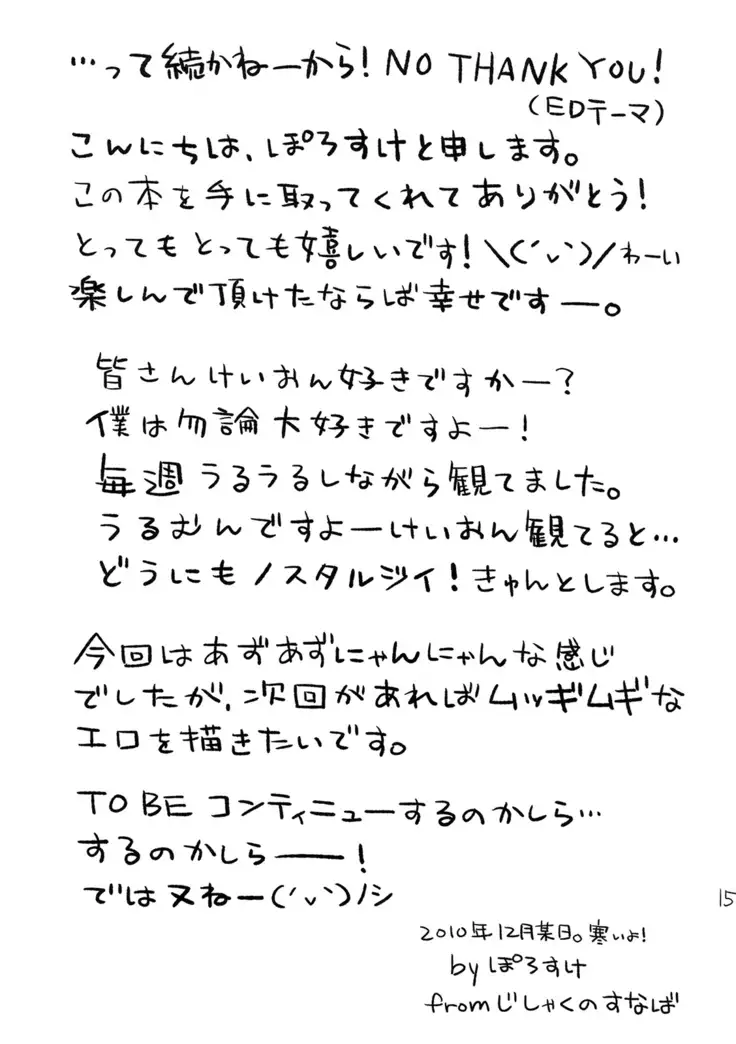 …って続かねーから!NO THANK YOU!
(EDテーマ)
こんにちは、ぽろすけと申します。
この本を手に取ってくれてありがとう!
とってもとっても嬉しいです!＼(´ヽ`)/わーい
楽しんで頂けたならば幸せですー。
皆さんけいおん好きですかー?
僕は勿論大好きですよー!
毎週うるうるしながら観てました。
うるむんですよーけいおん観てると…
どうにもノスタルジイ!きゅんとします。
今回はあずあずにゃんにゃんな感じ
でしたが、次回があればムッギムギな
エロを描きたいです。
TO BE コンティニューするのかしら…
するのかしらー!
では又ねー(´ヽ`)ノシ
15
2010年12月某日。寒いよ!
by ぽろすけ
fromじしゃくのすなば